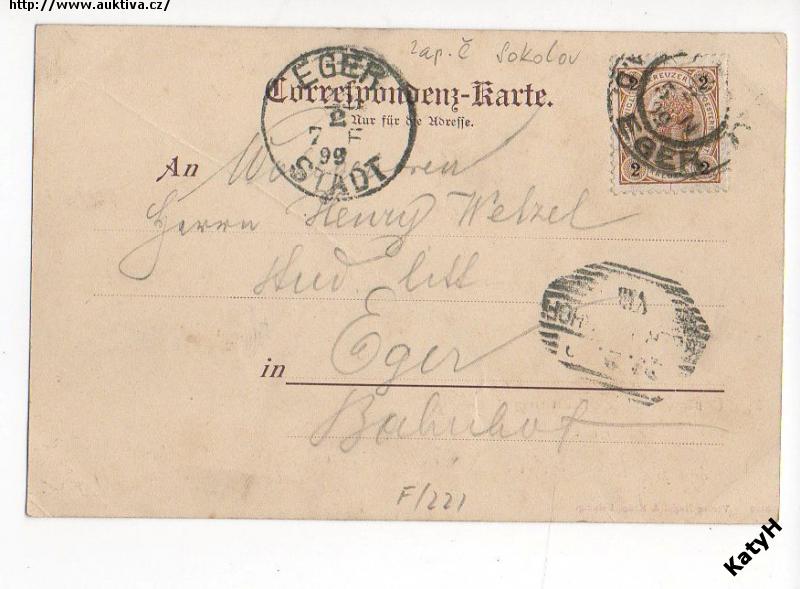 http://www.auktiva.cz/
zap. č Sokolov
Correspondenz-Karte.
Nur für die Adresse.
EGER
2
7
99
STADT
2 KREUZER 2
EGER
2 2
An
Herrn Henry Welzel
stud. litt
in Eger
Bahnhof
VIII
F/221
KatyH